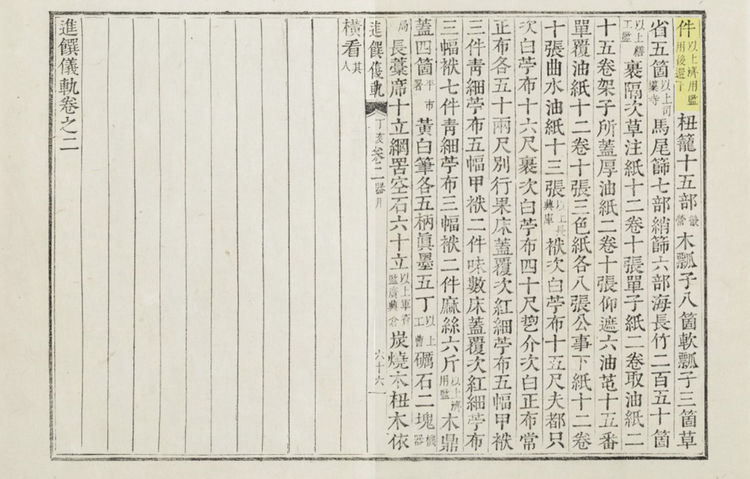 件以上濟用監用後還下杻籠十五部木瓢子八箇軟瓢子三箇草
省五箇以上司䆃寺馬尾篩七部綃篩六部海長竹二百五十箇
以上繕工監裹隔次草注紙十二卷十張單子紙二卷取油紙二
十五卷架子所蓋厚油紙二卷十張仰遮六油芚十五番
單覆油紙十二卷十張三色紙各八張公事下紙十二卷
十張曲水油紙十三張以上長興庫袱次白苧布十五尺夫都只
次白苧布十六尺裹次白苧布四十尺介次白正布常
正布各五十兩尺別行果床蓋覆次紅細苧布五幅甲袱
三件靑細苧布五幅甲袱二件味數床蓋覆次紅細苧布
三幅袱七件靑細苧布三幅袱二件麻絲六斤以上濟用監木鼎
蓋四箇平市署黃白筆各五柄眞墨五丁以上工曹礪石二塊
局長藁席十立網罟空石六十立以上軍資監廣興倉炭燒木杻木依
進饌儀軌 丁亥 卷二 器用 六十六
橫看其人
進饌儀軌卷之二